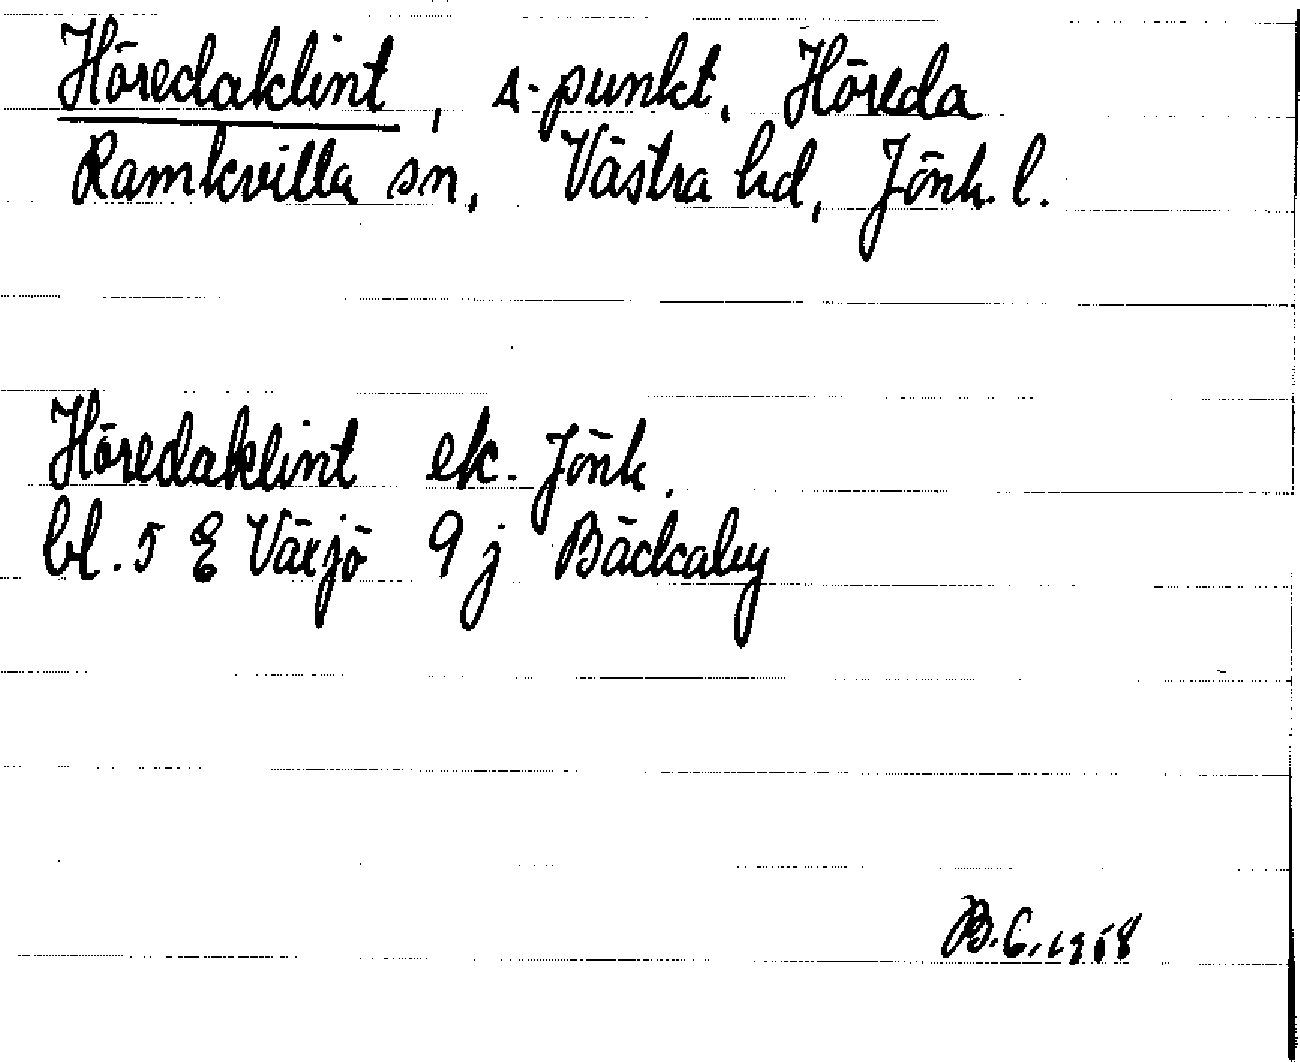 Höredaklint, ▵-punkt. Höreda
Ramkvilla sn, Västra hd, Jönk. l.
Höredaklint ek. Jönk.
bl. 5 E Växjö 9 j Bäckaby
B.C. 1958